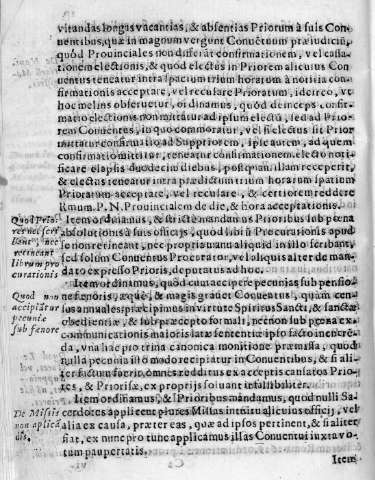 vitandas longas vacantias, & absentias Priorum à suis Con
uentibus, quæ in magnum vergunt Conuétuum præiudiciũ,
quòd Prouinciales non differãt confirmationem, vel cassa-
tionem electionis, & quod electus in Priorem alicuius Con
uentus teneatur intra spacium trium horarum à notitia con
firmationis acceptare, vel recusare Prioratum, idcirco, vt
hoc melius obseruetur, ordinamus, quòd deinceps confir-
matio electionis non mittatur ad ipsum electũ, sed ad Prio-
rem Conuentus, in quo commoratur, vel si electus sit Prior
mittatur confirmatio ad Suppriorem, ipse autem, ad quem
confirmatio mittitur, teneatur confirmationem electo noti-
ficare elapsis duodecim diebus, postquam illam recæperit,
& electus teneatur intra prædictum trium horarum spatium
Prioratum acceptare, vel recusare, & certiorem reddere
Rmum. P. N. Prouincialem de die, & hora acceptationis.
Quod Prio-
res nec seri
bant, nec
retineant
librum pro
curationis
Item ordinamus, & strictè mandamus Prioribus sub pœna
absolutionis à suis officijs, quòd librũ Procurationis apud
se non retineant, nec propria manu aliquid in illo scribant,
sed solum Conuentus Procurator, vel aliquis alter de man-
dato expresso Prioris, deputatus ad hoc.
Quod non
accipiãtur
pecuniæ
sub fenore
Item ordinamus, quòd cum accipere pecunias sub pensio-
ne fœnoris, æquè, & magis grauet Conuentus, quàm cen-
sus annuales: præcipimus in virtute Spiritus Sancti, & sanctæ
obedientiæ, & sub præcepto formali, necnon sub pœna ex-
communicationis maioris latæ sententiæ ipso facto incurrẽ-
da, vna hac pro trina canonica monitione præmissa, quod
nulla pecunia isto modo recipiatur in Conuentibus, & si ali-
ter factum fuerit, omnes redditus ex acceptis cassatos Prio-
res, & Priorissæ, ex proprijs soluant infallibiliter.
De Missis
non aplicã
dis.
Item ordinamus, & Prioribus mandamus, quod nulli Sa-
cerdotes applicent plures Missas intuitu alicuius officij, vel
alia ex causa, præter eas, quæ ad ipsos pertinent, & si aliter
fiat, ex nunc pro tunc applicamus illas Conuentui iuxta vo-
tum paupertatis.
Item